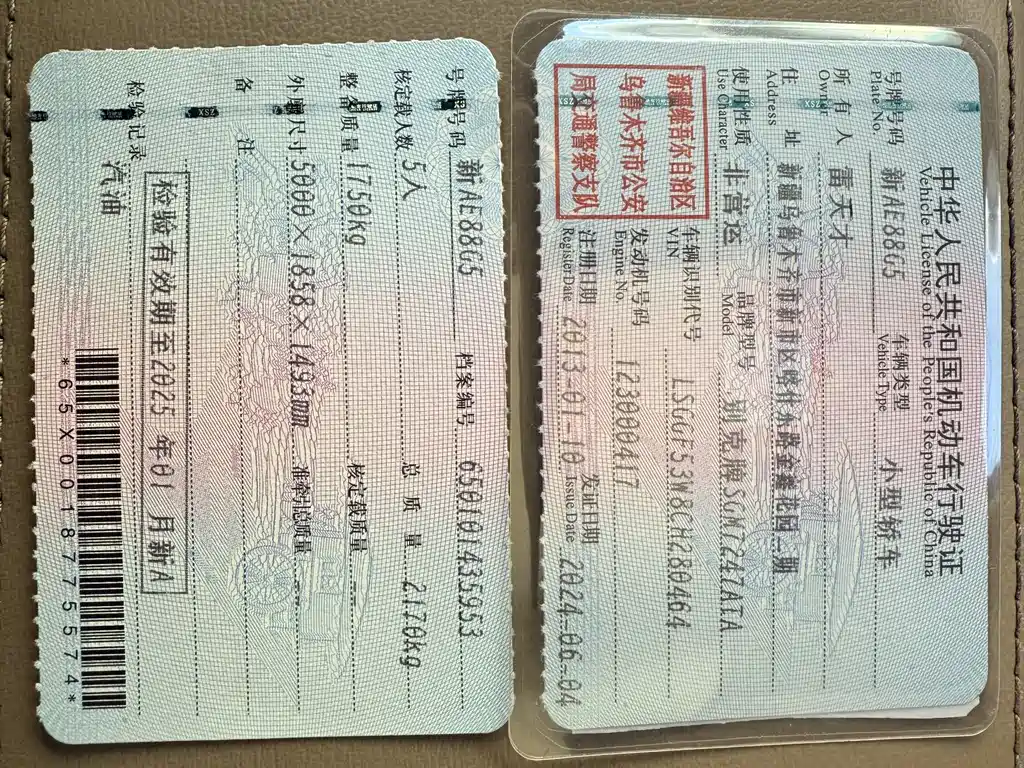 中华人民共和国机动车行驶证
Vehicle License of the People's Republic of China
号牌号码 新AE88G5 车辆类型 小型轿车
Plate No. Vehicle Type
所有人 雷天才
Owner
住址 新疆乌鲁木齐市新市区喀什东路金鑫花园一期
Address
使用性质 非营运 品牌型号 别克牌SGM7247ATA
Use Character Model
新疆维吾尔自治区
乌鲁木齐市公安
局交通警察支队
车辆识别代号 LSGGF53W8CH280464
VIN
发动机号码 123000417
Engine No.
注册日期 2013-01-10 发证日期 2024-06-04
Register Date Issue Date
号牌号码 新AE88G5 档案编号 650101435953
核定载人数 5人 总质量 2170kg
整备质量 1750kg 核定载质量
外廓尺寸 5000×1858×1493mm 准牵引总质量
备注
检验有效期至2025年01月新A
检验记录
汽油
*65X0018775574*